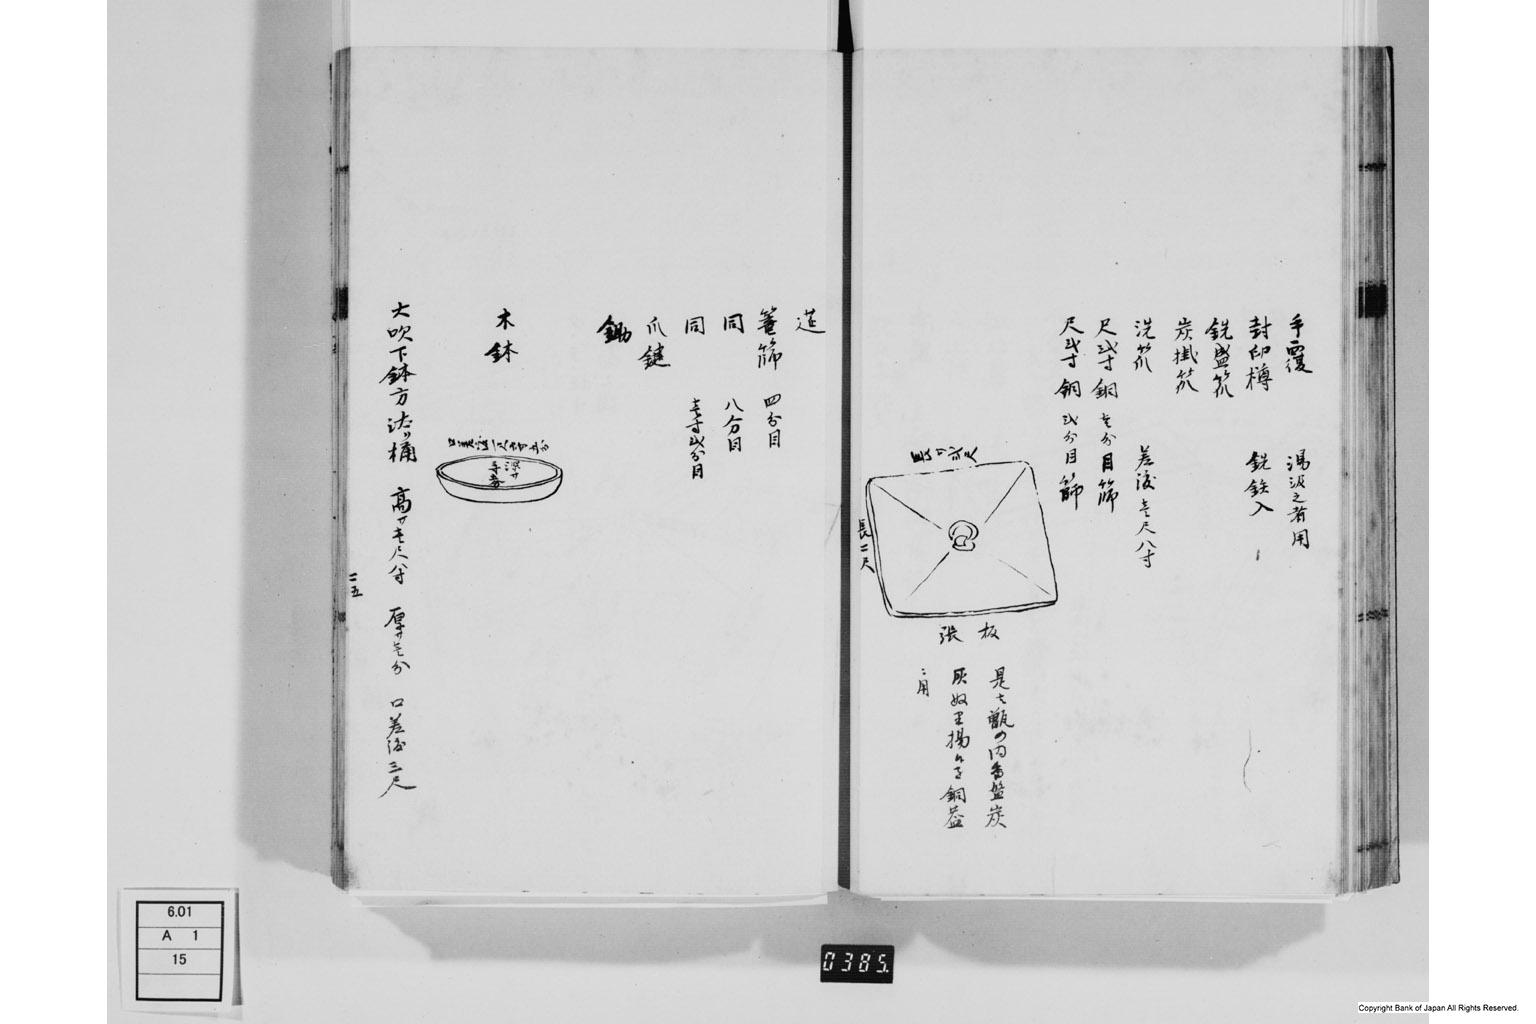 手覆　湯汲之者用
封印樽　銑鉄入
銑盛笊
炭掛笊
洗笊　差渡壱尺八寸
尺弐寸 銅 壱分目篩
尺弐寸 銅 弐分目篩
長二尺
張板
是ハ甑の内番盤炭
銅蓋
ニ用
莚
篭篩　四分目
同　八分目
同　壱寸弐分目
爪鍵
鋤
木鉢
深サ
大吹下鉢方法桶　高サ壱尺八寸　厚サ壱分　口差渡三尺
二五
6.01
A 1
15
0385.
Copyright Bank of Japan All Rights Reserved.